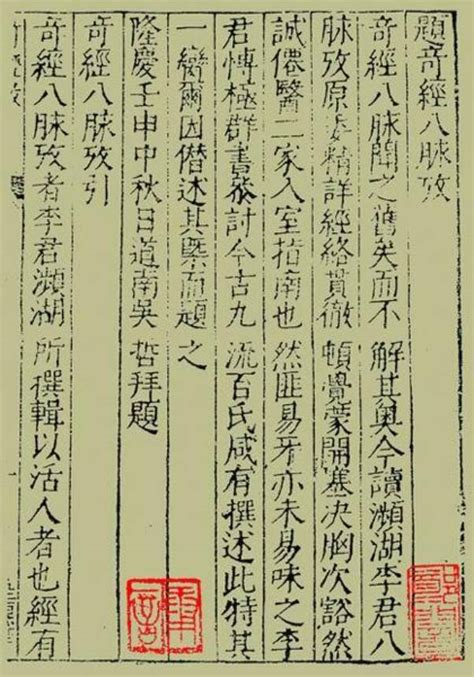 題奇經八脉攷
奇經八脉聞之舊矣而不解其奥今讀瀕湖李君八
脉攷原委精詳經絡貫徹頓覺蒙開塞决胸次豁然
誠僊醫二家入室指南也然匪易牙亦未易味之李
君愽極群書叅討今古九流百氏咸有撰述此特其
一臠爾因僭述其槩而題之
隆慶壬申中秋日道南吴哲拜題
奇經八脉攷引
奇經八脉攷者李君瀕湖所撰輯以活人者也經有